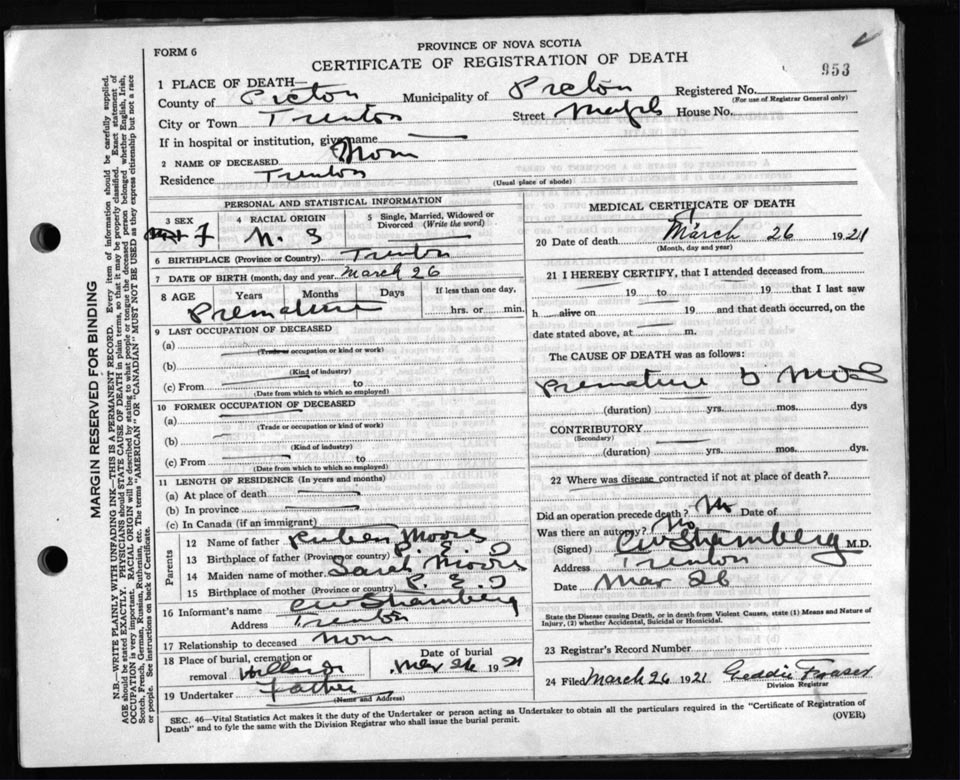 FORM 6
PROVINCE OF NOVA SCOTIA
CERTIFICATE OF REGISTRATION OF DEATH
953
1 PLACE OF DEATH—
County of Pictou Municipality of Pictou Registered No.
(For use of Registrar General only)
City or Town Trenton Street House No.
If in hospital or institution, give name
2 NAME OF DECEASED
Residence Trenton (Usual place of abode)
PERSONAL AND STATISTICAL INFORMATION
3 SEX F
4 RACIAL ORIGIN N. S
5 Single, Married, Widowed or Divorced (Write the word)
6 BIRTHPLACE (Province or Country). Trenton
7 DATE OF BIRTH (month, day and year. March 26
8 AGE Years Months Days If less than one day, hrs. or min.
Premature
9 LAST OCCUPATION OF DECEASED
(a)
(Trade or occupation or kind or work)
(b)
(Kind of industry)
(c) From to
(Date from which to which so employed)
10 FORMER OCCUPATION OF DECEASED
(a)
(Trade or occupation or kind of work)
(b)
(Kind of industry)
(c) From to
(Date from which to which so employed)
11 LENGTH OF RESIDENCE (In years and months)
(a) At place of death
(b) In province
(c) In Canada (if an immigrant)
Parents
12 Name of father Ruben Moores
13 Birthplace of father (Province or country) P. E. I
14 Maiden name of mother Sarah Moores
15 Birthplace of mother (Province or country) P. E. I
16 Informant's name
Address Trenton
17 Relationship to deceased
18 Place of burial, cremation or removal
Date of burial Mar 26 1921
19 Undertaker Father
(Name and Address)
MEDICAL CERTIFICATE OF DEATH
20 Date of death March 26 1921
(Month, day and year)
21 I HEREBY CERTIFY, that I attended deceased from
19 to 19 that I last saw
h alive on 19 and that death occurred, on the
date stated above, at m.
The CAUSE OF DEATH was as follows:
Premature 6 mos
(duration) yrs. mos. dys
CONTRIBUTORY
(Secondary)
(duration) yrs. mos. dys.
22 Where was disease contracted if not at place of death?
Did an operation precede death? No Date of
Was there an autopsy? No
(Signed) M.D.
Address Trenton
Date Mar 26
State the Disease causing Death, or in death from Violent Causes, state (1) Means and Nature of
Injury, (2) whether Accidental, Suicidal or Homicidal.
23 Registrar's Record Number
24 Filed March 26 1921 Geddie Fraser
Division Registrar
SEC. 46—Vital Statistics Act makes it the duty of the Undertaker or person acting as Undertaker to obtain all the particulars required in the "Certificate of Registration of
Death" and to fyle the same with the Division Registrar who shall issue the burial permit.
(OVER)
MARGIN RESERVED FOR BINDING
N.B.—WRITE PLAINLY WITH UNFADING INK—THIS IS A PERMANENT RECORD. Every item of information should be carefully supplied.
AGE should be stated EXACTLY. PHYSICIANS should STATE CAUSE OF DEATH in plain terms, so that it may be properly classified. Exact statement of
OCCUPATION is very important. RACIAL ORIGIN will be described by stating to what people or tongue the deceased person belonged whether English, Irish,
Scotch, French, German, Russian, Ruthenian, etc. The terms "AMERICAN" or "CANADIAN" MUST NOT BE USED as they express citizenship but not a race
or people. See instructions on back of Certificate.